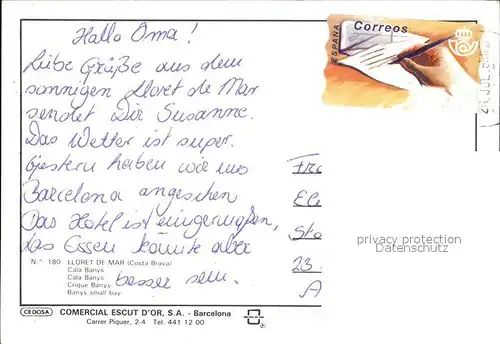 Hallo Oma!
Liebe Grüße aus dem
sonnigen Lloret de Mar
sendet Dir Susanne.
Das Wetter ist super.
Gestern haben wir uns
Barcelona angesehen
Das Hotel ist
das Essen könnte aber
besser sein.
Correos
ESPAÑA
23
A
privacy protection
www.ansichtskarten-center.de
N.° 180 LLORET DE MAR (Costa Brava)
Cala Banys
Cala Banys
Crique Banys
Banys small bay
CEDOSA
COMERCIAL ESCUT D'OR, S.A. - Barcelona
Carrer Piquer, 2-4 Tel. 441 12 00